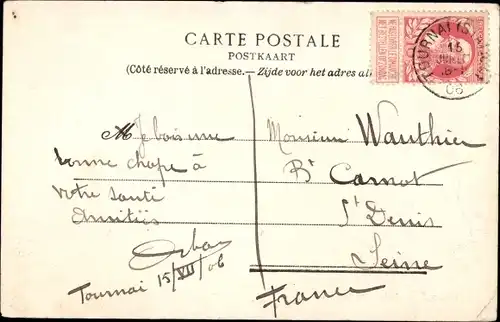 CARTE POSTALE
POSTKAART
(Côté réservé à l'adresse. — Zijde voor het adres
TOURNAI (S
15
08
M Je bois une
bonne chope à
votre santé
Amitiés
Tournai 15/VII/06
Monsieur Wauthier
Bd Carnot
St Denis
Seine
France